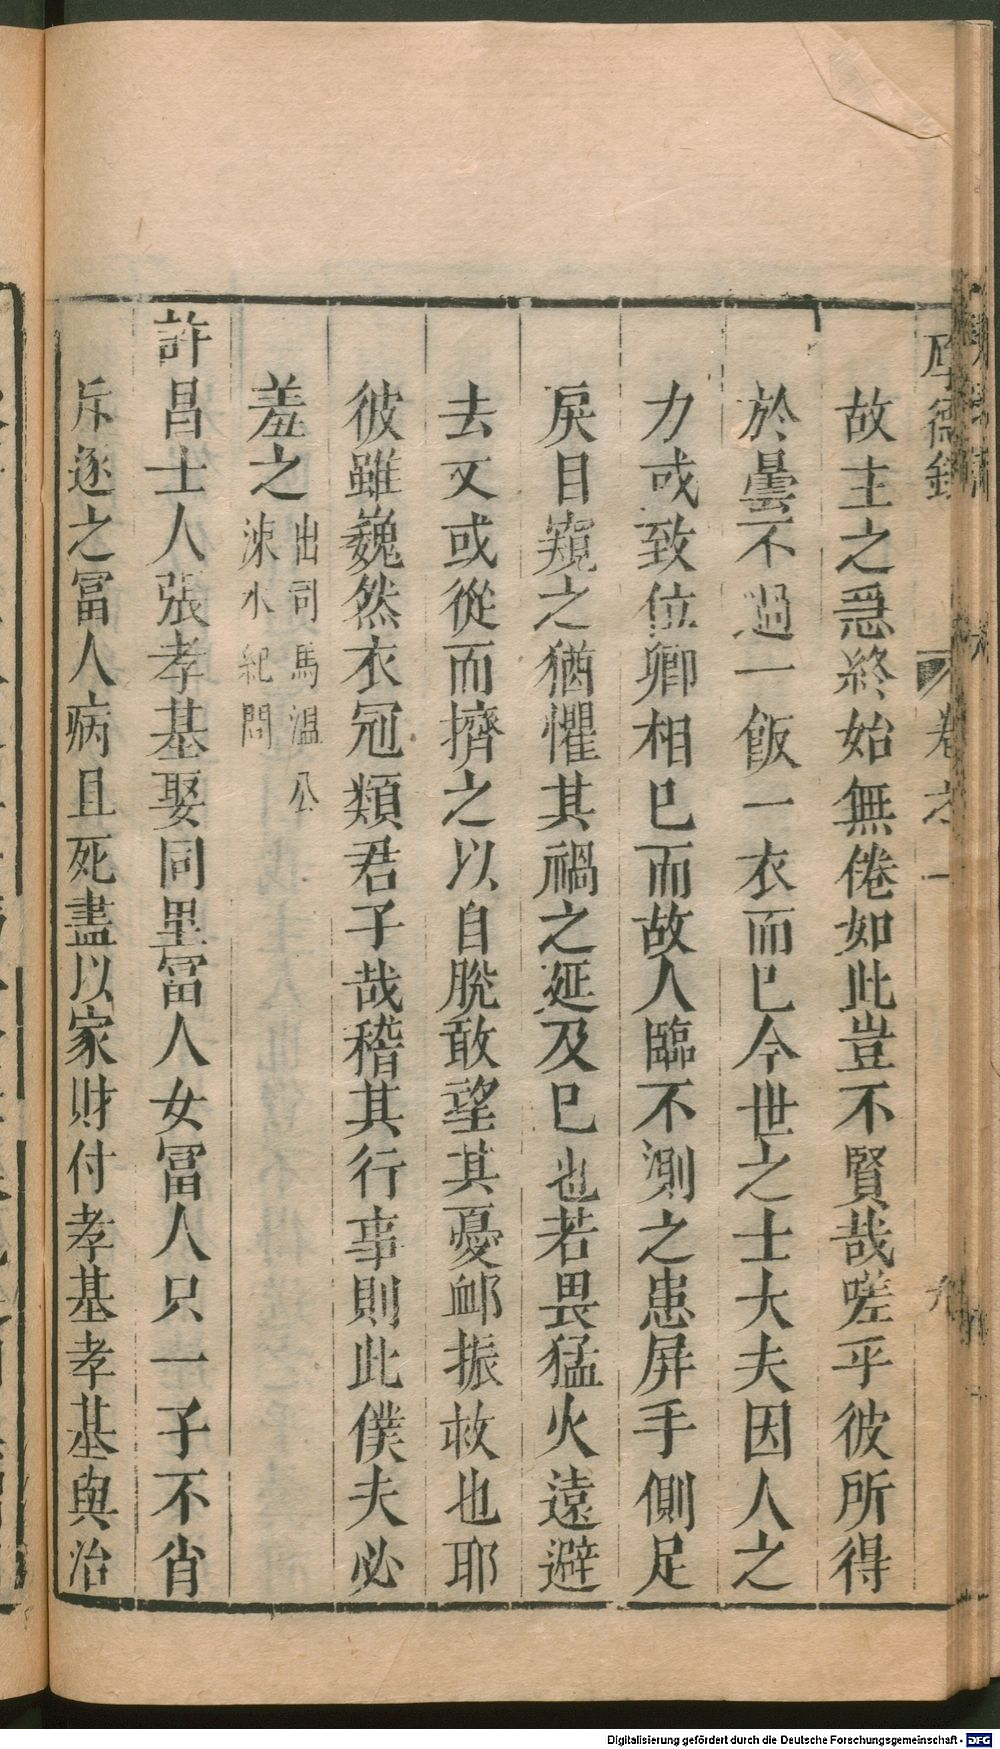 厚德錄 卷之一 九
故主之急終始無倦如此豈不賢哉嗟乎彼所得
於曇不過一飯一衣而已今世之士大夫因人之
力或致位卿相已而故人臨不測之患屏手側足
戾目窺之猶懼其禍之延及已也若畏猛火遠避
去又或從而擠之以自脫敢望其憂衈振救也耶
彼雖巍然衣冠類君子哉稽其行事則此僕夫必
羞之
出司馬溫公
涑水紀問
許昌士人張孝基娶同里冨人女冨人只一子不肖
斥逐之冨人病且死盡以家財付孝基孝基與治
Digitalisierung gefördert durch die Deutsche Forschungsgemeinschaft - DFG